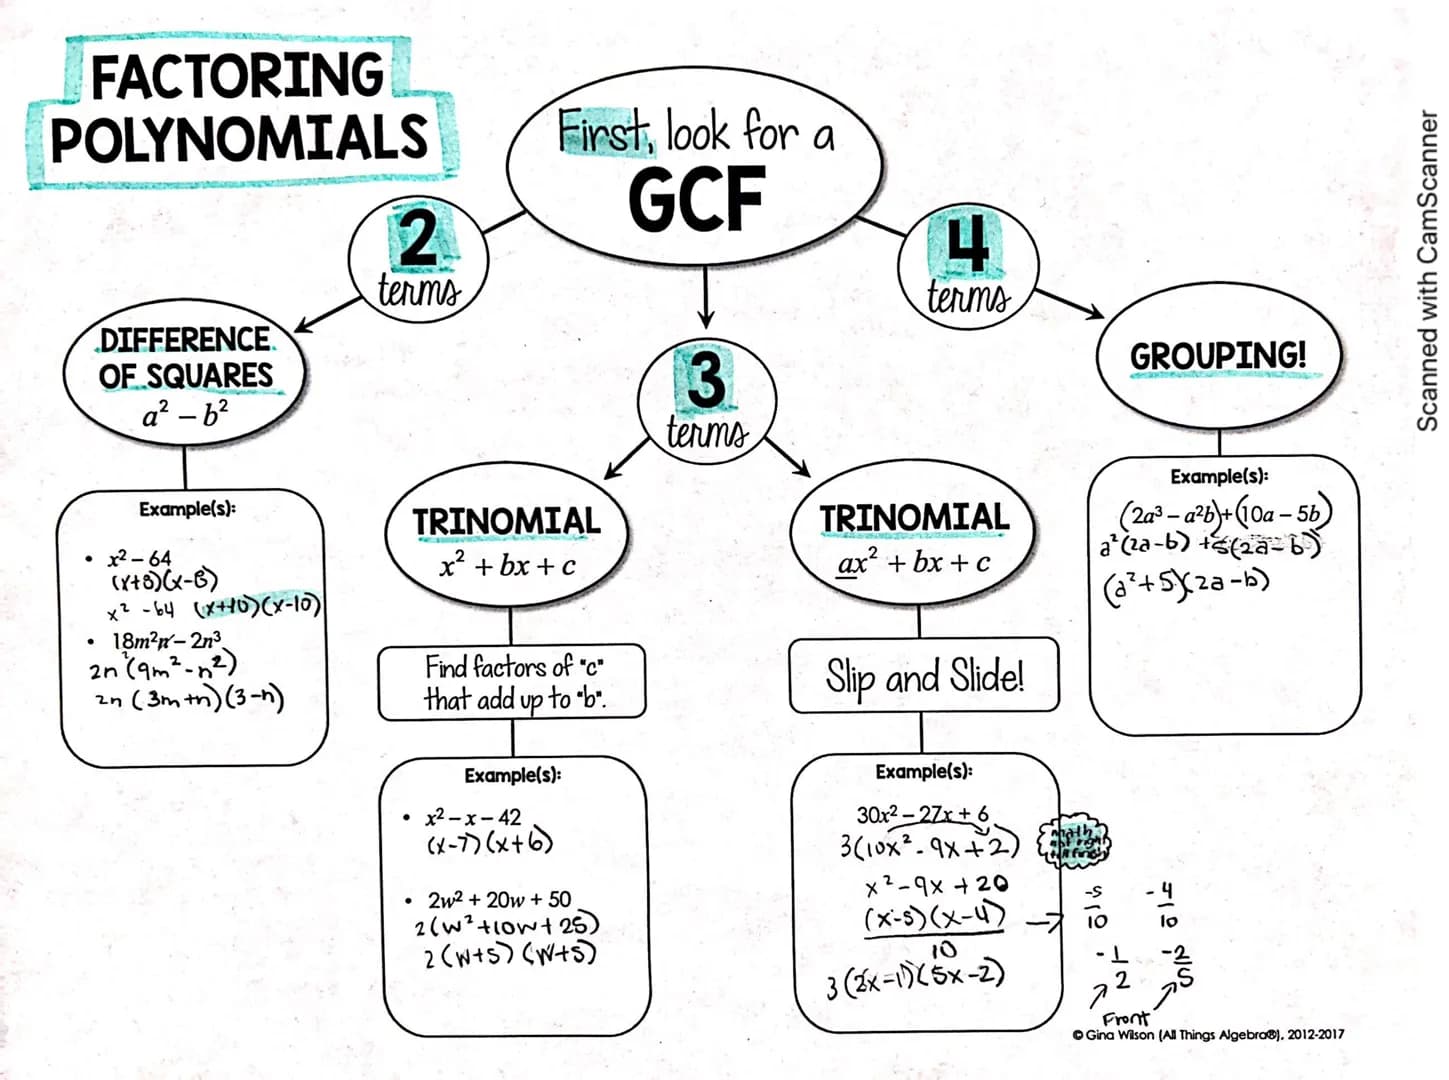 FACTORING
POLYNOMIALS
First, look for a
GCF
2
terms
4
terms
3
terms
DIFFERENCE
OF SQUARES
a² – b²
Example(s):
• x² – 64
(x+8)(x-8)
x² -64 (x+10)(x-10)
• 18m²n – 2n³
2n (9m² - n²)
2n (3m+n)(3-n)
TRINOMIAL
x² + bx + c
Find factors of "c"
that add up to "b".
Example(s):
• x² – x – 42
(x-7)(x+6)
• 2w² + 20w + 50
2(w²+10w+25)
2(w+5)(w+5)
TRINOMIAL
ax² + bx + c
Slip and Slide!
Example(s):
30x² – 27x + 6
3(10x² - 9x + 2)
x² - 9x + 20
(x-5)(x-4) →
10
3(2x-1)(5x-2)
-5/10 -4/10
-1/2 -2/5
Front
GROUPING!
Example(s):
(2a³ – a²b)+(10a – 5b)
a²(2a-b) +5(2a-b)
(a²+5)(2a-b)
© Gina Wilson (All Things Algebra®), 2012-2017
Scanned with CamScanner